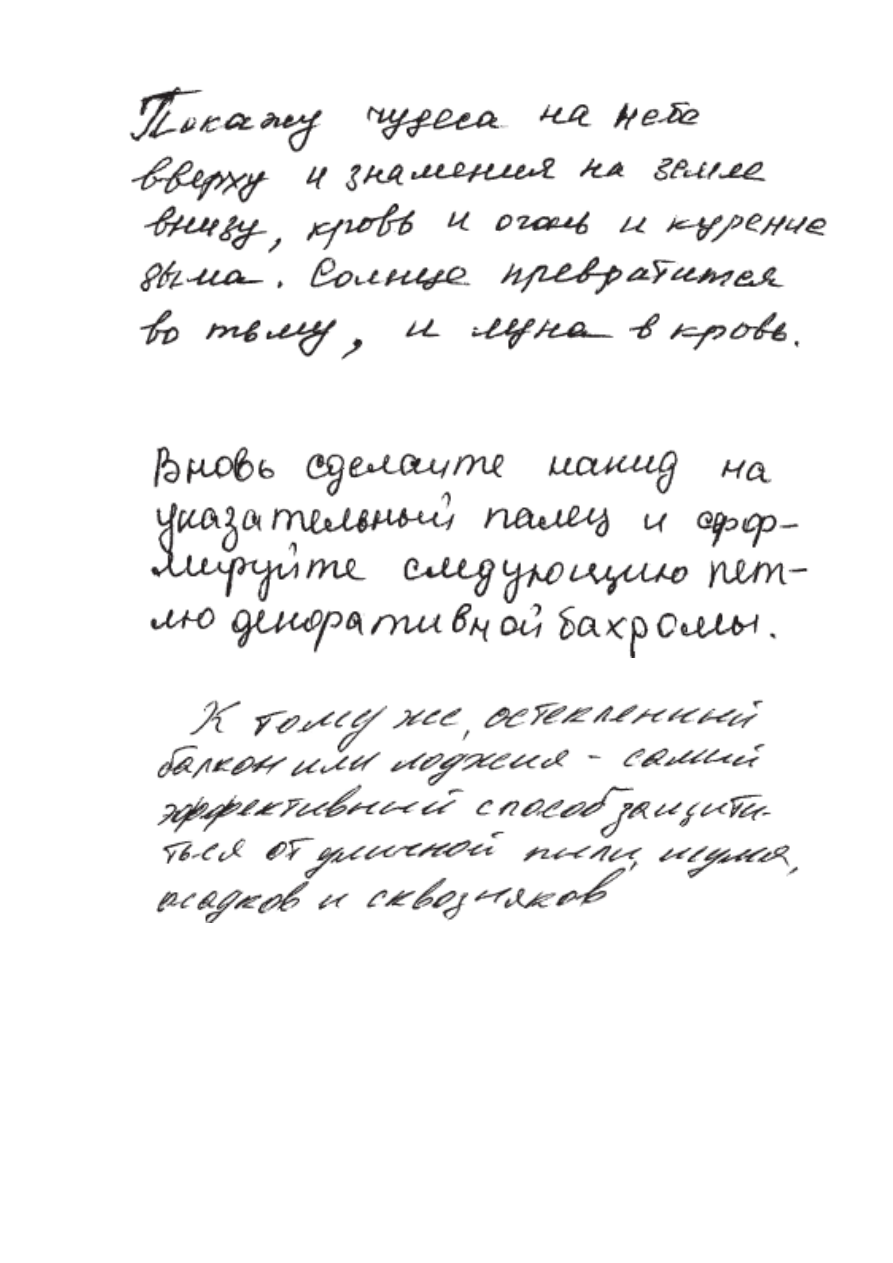 Покажу чудеса на небе
вверху и знамения на земле
внизу, кровь и огонь и курение
дыма. Солнце превратится
во тьму, и луна в кровь.
Вновь сделайте накид на
указательный палец и сфор-
мируйте следующую пет-
лю декоративной бахромы.
К тому же, остекленный
балкон или лоджия - самый
эффективный способ защити-
ться от уличной пыли, шума,
осадков и сквозняков